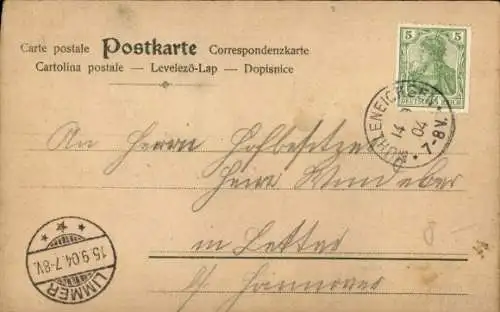 Carte postale Postkarte Correspondenzkarte
Cartolina postale — Levelező-Lap — Dopisnice
5 5
DEUTSCHES REICH
MÜHLENEICHSEN
14 9 04
7-8V.
An Herrn Hofbesitzer
Heinr. Windeber
in Letter
b/ Hannover
LIMMER
15.9.04.7-8V.